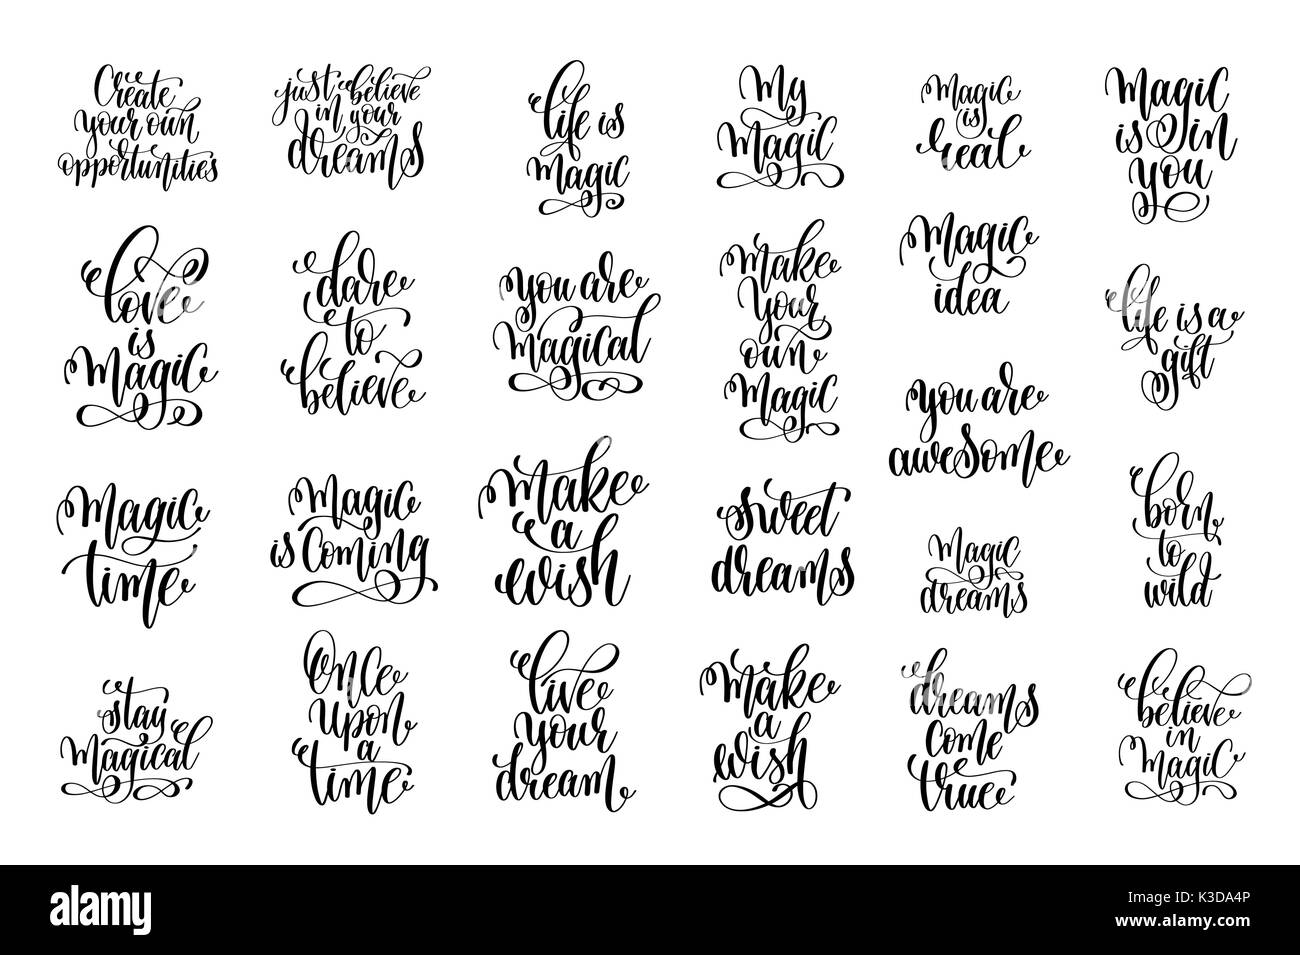 Create
your own
opportunities
just believe
in your
dreams
life is
magic
My
Magic
Magic
is
real
Magic
is in
you
love
is
Magic
dare
to
believe
you are
Magical
Make
Your
own
Magic
Magic
idea
life is a
gift
Magic
time
Magic
is Coming
Make
a
wish
sweet
dreams
you are
awesome
Magic
dreams
born
to
wild
stay
Magical
Once
upon
a
time
live
your
dream
Make
a
wish
dreams
come
true
believe
in
Magic
alamy
Image ID: K3DA4P
www.alamy.com